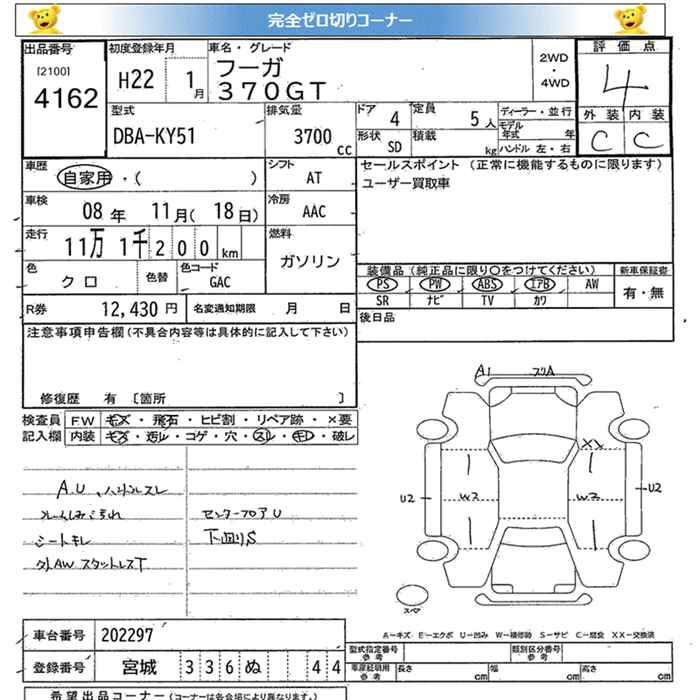 完全ゼロ切りコーナー
出品番号 初度登録年月 車名・グレード 2WD・4WD 評価点
[2100] 4162 H22 1月 フーガ 370GT 4
型式 排気量 ドア 4 定員 5人 ディーラー・並行 外装 内装
DBA-KY51 3700cc 形状 SD 積載 kg モデル年式 年 C C
ハンドル 左・右
車歴 シフト セールスポイント (正常に機能するものに限ります)
自家用・( ) AT ユーザー買取車
車検 冷房
08年 11月(18日) AAC
走行 燃料
11万1千200km ガソリン
色 色替 色コード 装備品(純正品に限り○をつけてください) 新車保証書
クロ GAC PS PW ABS エアB AW 有・無
SR ナビ TV カワ
R券 12,430円 名変通知期限 月 日 後日品
注意事項申告欄(不具合内容等は具体的に記入して下さい)
修復歴 有 〔箇所 〕
検査員 FW キズ・飛石・ヒビ割・リペア跡・×要
記入欄 内装 キズ・汚レ・コゲ・穴・スレ・キレ・破レ
A1
XX
U2 W2 W2 U2
A.U、ハンドルスレ
センターフロアU
シートキレ 下回りS
外AW スタットレスT
スペア
A-キズ E-エクボ U-凹み W-補修跡 S-サビ C-腐食 XX-交換済
車台番号 202297
型式指定番号 参考 類別区分番号 参考
登録番号 宮城 336ぬ 44
車庫証明用 参考 長さ cm 幅 cm 高さ cm
希望出品コーナー(コーナーは各会場により異なります。)